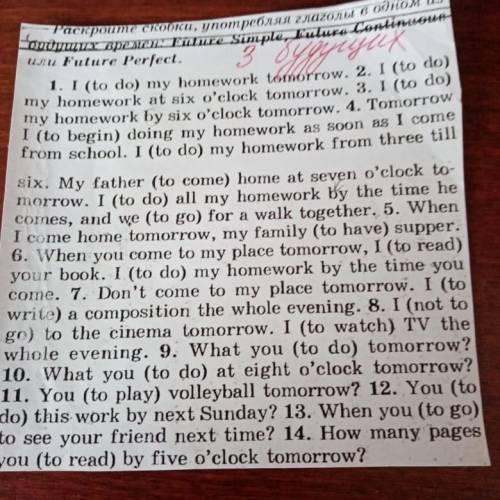 Раскройте скобки, употребляя глаголы в одном из
будущих времен: Future Simple, Future Continuous
или Future Perfect.
3 будущих
1. I (to do) my homework tomorrow. 2. I (to do)
my homework at six o'clock tomorrow. 3. I (to do)
my homework by six o'clock tomorrow. 4. Tomorrow
I (to begin) doing my homework as soon as I come
from school. I (to do) my homework from three till
six. My father (to come) home at seven o'clock to-
morrow. I (to do) all my homework by the time he
comes, and we (to go) for a walk together. 5. When
I come home tomorrow, my family (to have) supper.
6. When you come to my place tomorrow, I (to read)
your book. I (to do) my homework by the time you
come. 7. Don't come to my place tomorrow. I (to
write) a composition the whole evening. 8. I (not to
go) to the cinema tomorrow. I (to watch) TV the
whole evening. 9. What you (to do) tomorrow?
10. What you (to do) at eight o'clock tomorrow?
11. You (to play) volleyball tomorrow? 12. You (to
do) this work by next Sunday? 13. When you (to go)
to see your friend next time? 14. How many pages
you (to read) by five o'clock tomorrow?